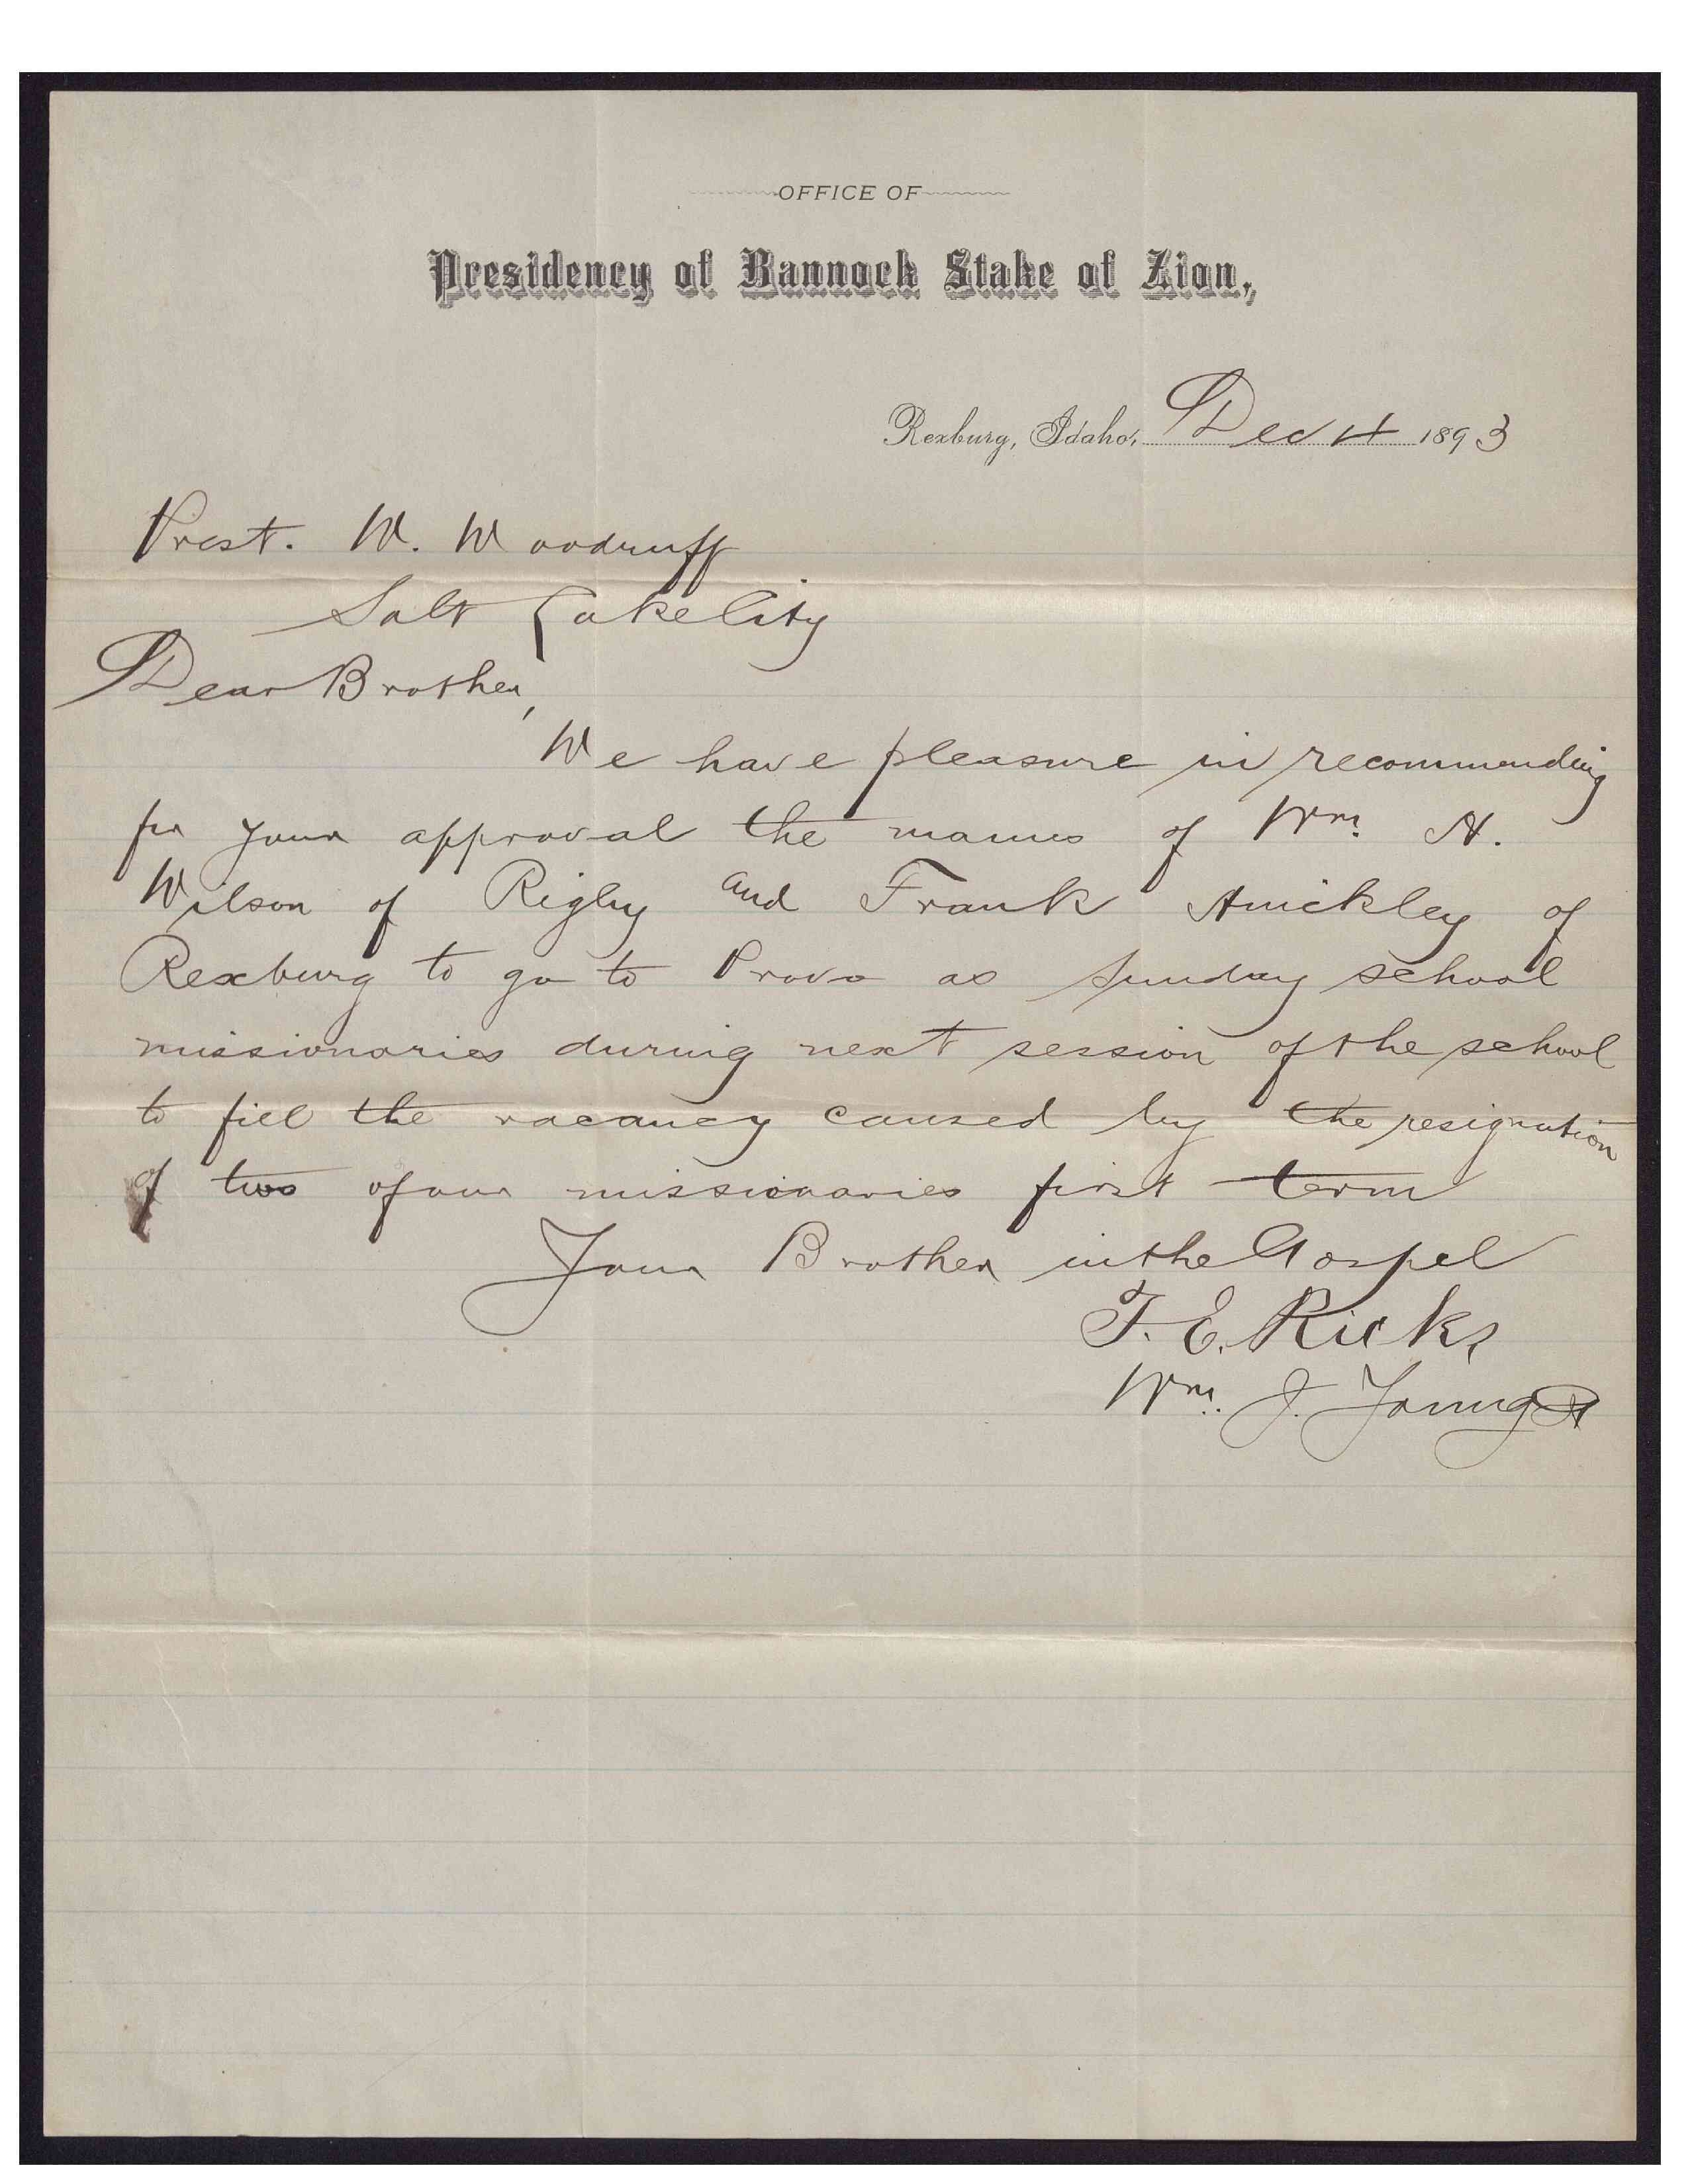 OFFICE OF
Presidency of Bannock Stake of Zion,
Rexburg, Idaho, Dec 4 1893
Prest. W. Woodruff
Salt Lake City
Dear Brother,
We have pleasure in recommending
for your approval the names of Wm. H.
Wilson of Rigby and Frank of
Rexburg to go to Provo as Sunday school
missionaries during next session of the school
to fill the vacancy caused by the resignation
of two of our missionaries first term
Your Brother in the Gospel
T. E. Ricks
Wm. J. Young